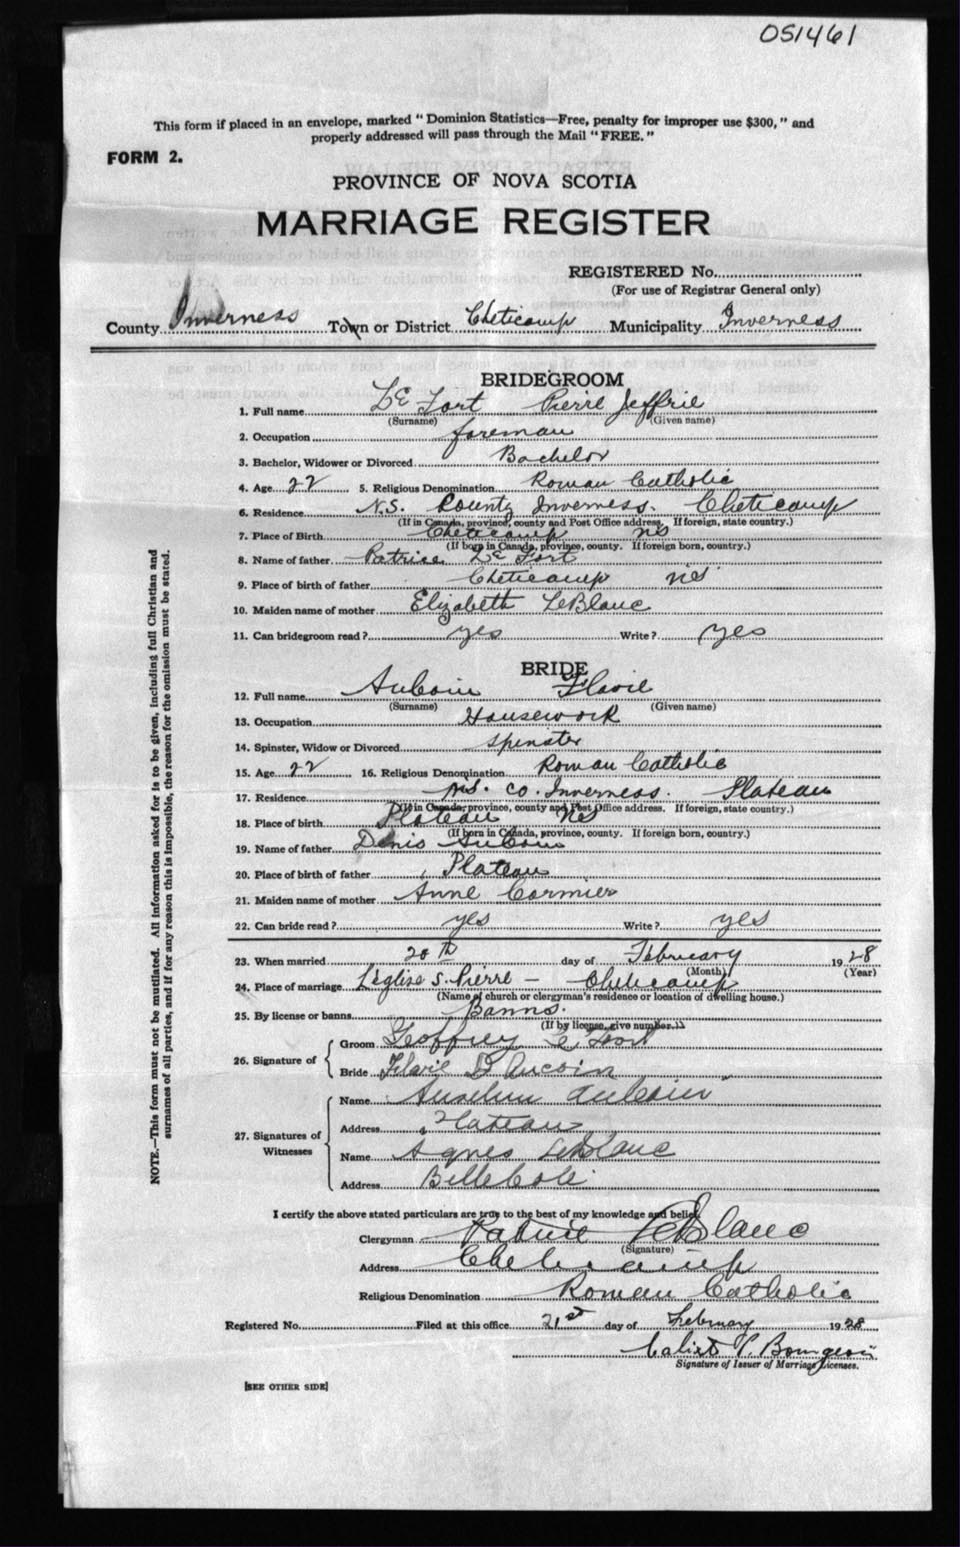 051461
This form if placed in an envelope, marked "Dominion Statistics—Free, penalty for improper use $300," and
properly addressed will pass through the Mail "FREE."
FORM 2.
PROVINCE OF NOVA SCOTIA
MARRIAGE REGISTER
REGISTERED No.
(For use of Registrar General only)
County Inverness Town or District Cheticamp Municipality Inverness
BRIDEGROOM
1. Full name Le Fort Pierre Jeffrie
(Surname) (Given name)
2. Occupation foreman
3. Bachelor, Widower or Divorced Bachelor
4. Age 22 5. Religious Denomination Roman Catholic
6. Residence N.S. County Inverness. Cheticamp
(If in Canada, province, county and Post Office address. If foreign, state country.)
7. Place of Birth Cheticamp NS
(If born in Canada, province, county. If foreign born, country.)
8. Name of father Patrice Le Fort
9. Place of birth of father Cheticamp NS
10. Maiden name of mother Elizabeth LeBlanc
11. Can bridegroom read? yes Write? yes
BRIDE
12. Full name Aucoin Flavie
(Surname) (Given name)
13. Occupation Housework
14. Spinster, Widow or Divorced spinster
15. Age 22 16. Religious Denomination Roman Catholic
17. Residence N.S. Co. Inverness. Plateau
(If in Canada, province, county and Post Office address. If foreign, state country.)
18. Place of birth Plateau NS
(If born in Canada, province, county. If foreign born, country.)
19. Name of father Denis Aucoin
20. Place of birth of father Plateau
21. Maiden name of mother Anne Cormier
22. Can bride read? yes Write? yes
23. When married 20th day of February 1928
(Month) (Year)
24. Place of marriage L'église S. Pierre — Cheticamp
(Name of church or clergyman's residence or location of dwelling house.)
25. By license or banns Banns.
(If by license, give number.)
26. Signature of
Groom Geoffrey Le Fort
Bride Flavie D Aucoin
27. Signatures of Witnesses
Name Anselme Aucoin
Address Plateau
Name Agnes LeBlanc
Address Belle Cote
I certify the above stated particulars are true to the best of my knowledge and belief.
Clergyman Patrice LeBlanc
(Signature)
Address Cheticamp
Religious Denomination Roman Catholic
Registered No. Filed at this office 21st day of February 1928
Calixte P. Bourgeois
Signature of Issuer of Marriage Licenses.
[SEE OTHER SIDE]
NOTE.—This form must not be mutilated. All information asked for is to be given, including full Christian and
surnames of all parties, and if for any reason this is impossible, the reason for the omission must be stated.